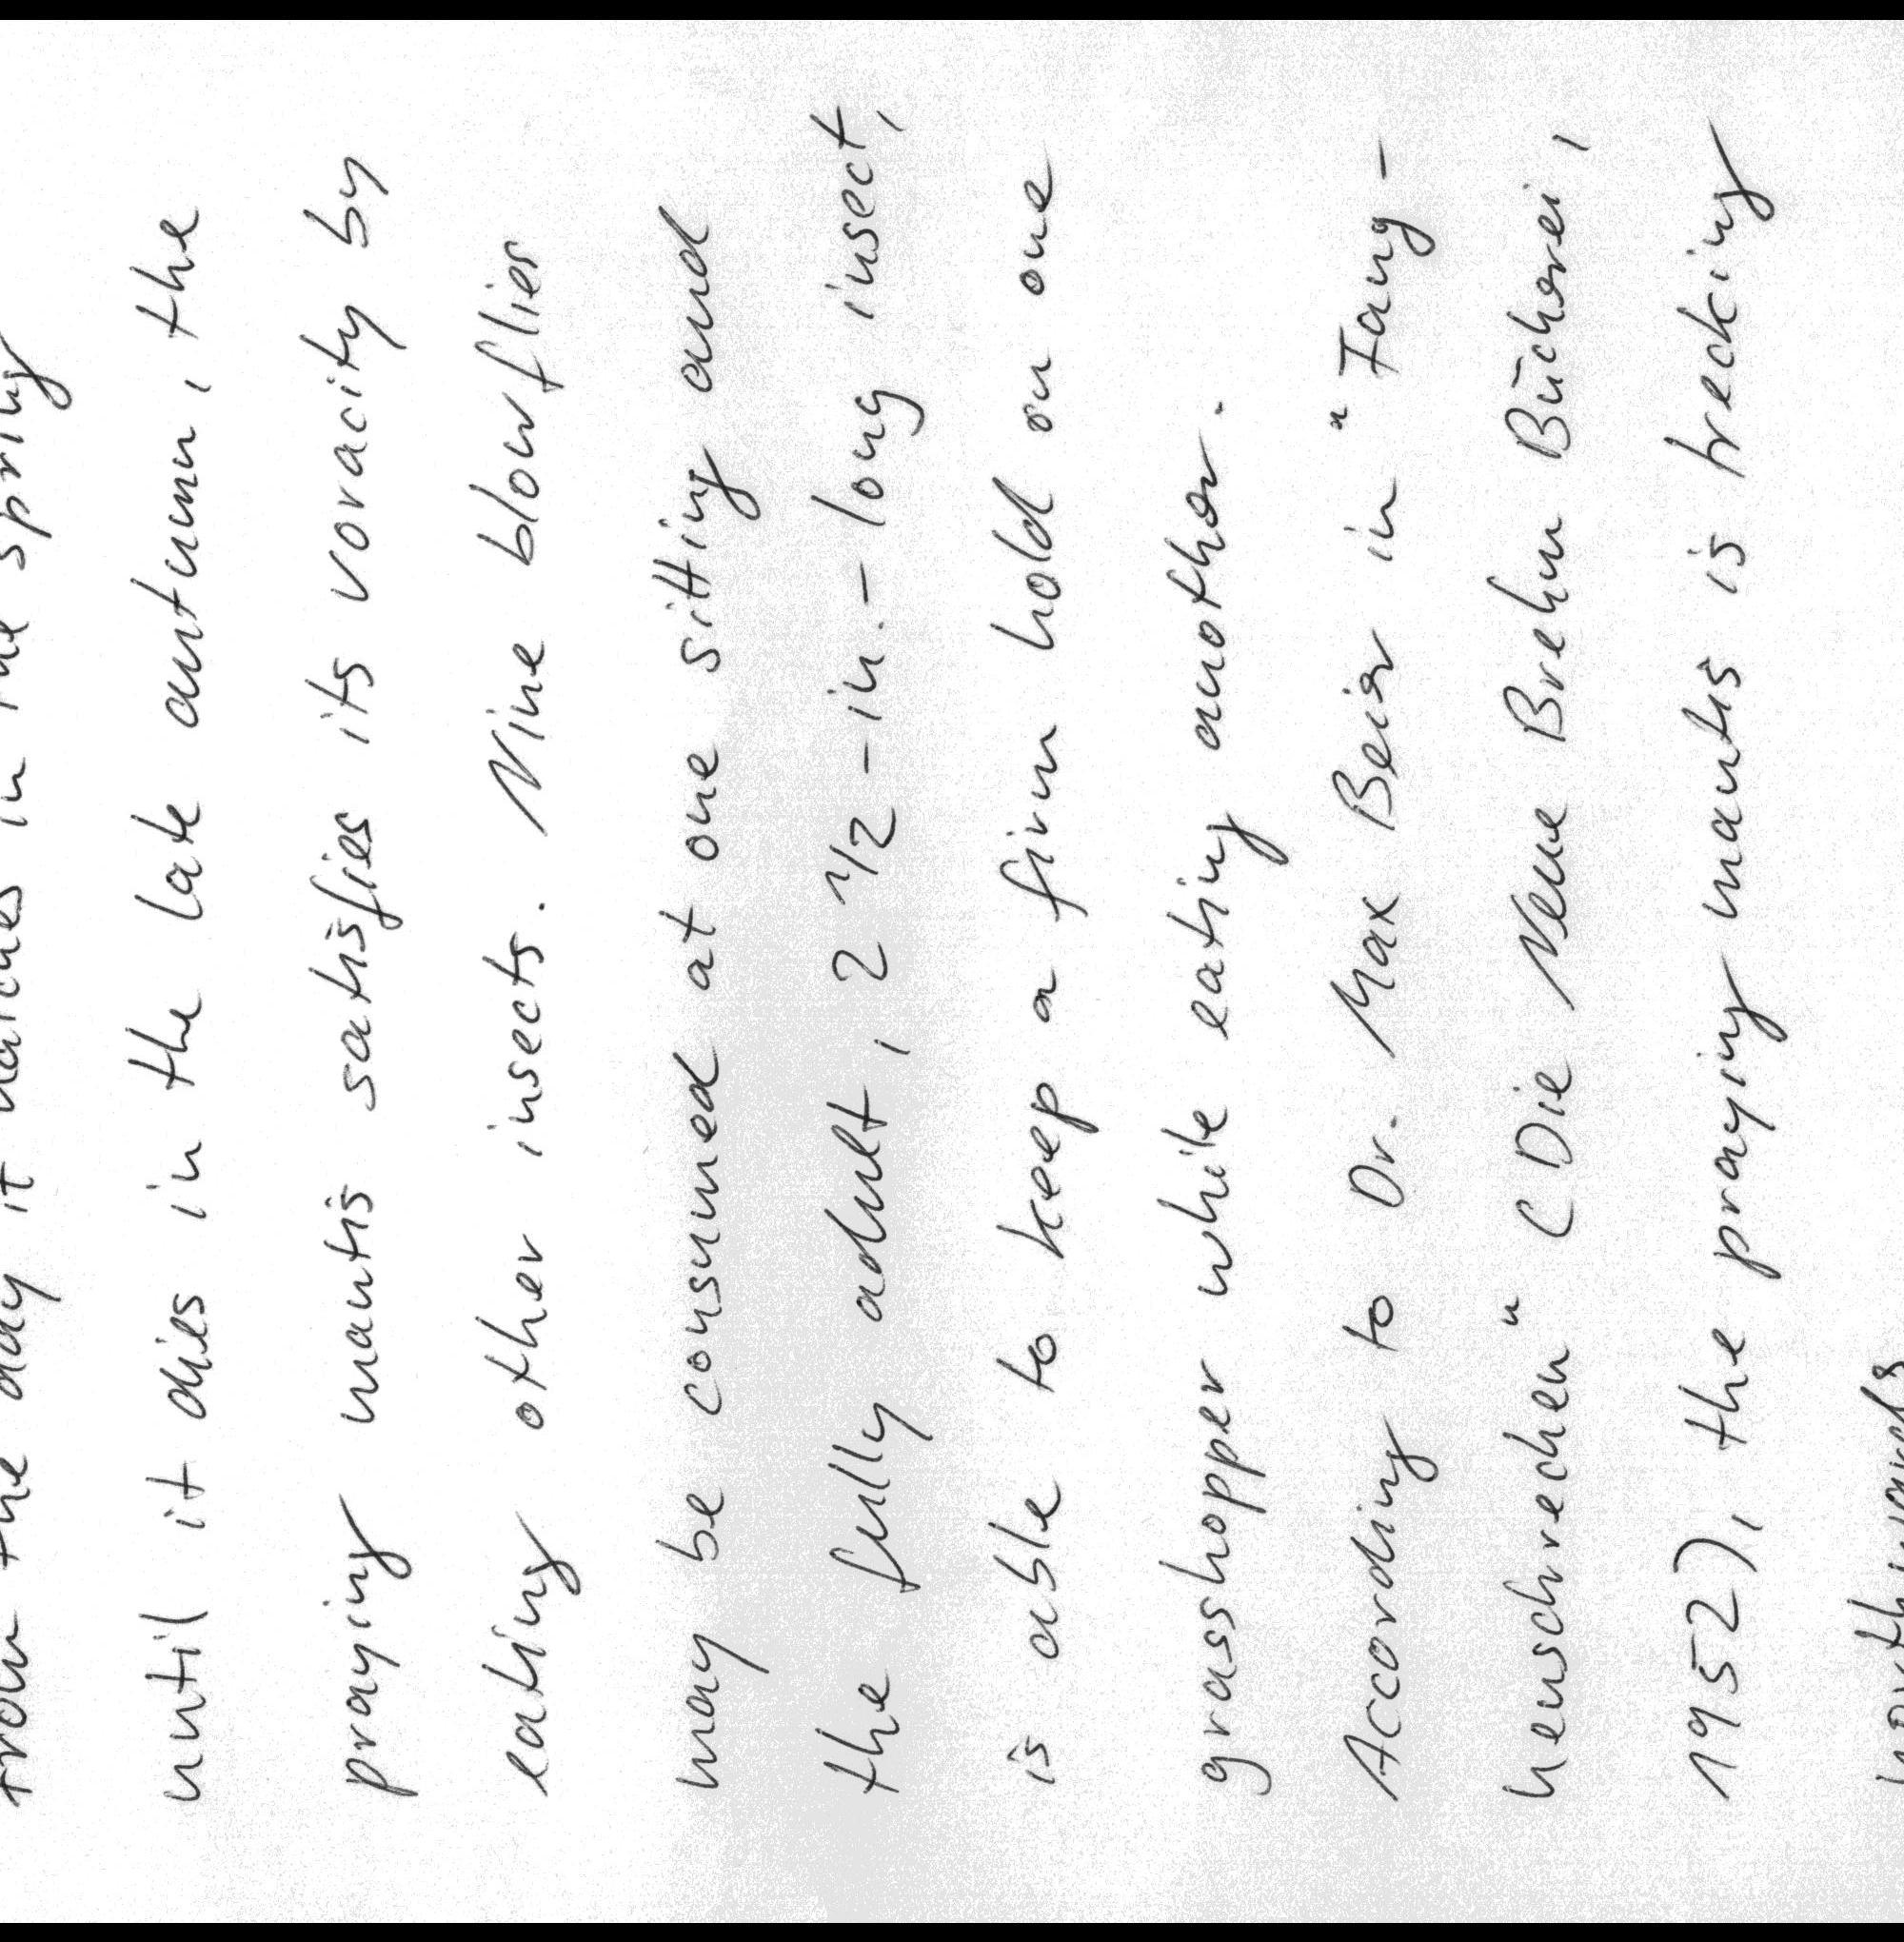 from the day it hatches in the spring
until it dies in the late autumn, the
praying mantis satisfies its voracity by
eating other insects. Nine blowflies
may be consumed at one sitting and
the fully adult, 2 1/2 -in.- long insect,
is able to keep a firm hold on one
grasshopper while eating another.
According to Dr. Max Beier in "Fang-
heuschrecken" (Die Neue Brehm Bücherei,
1952), the praying mantis is trecking
northwards